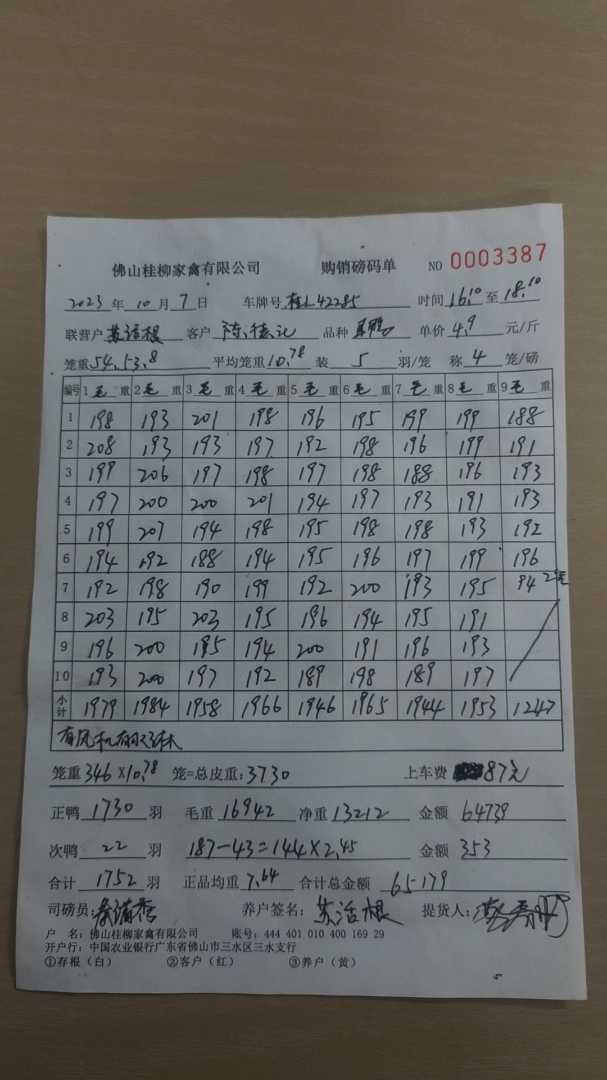 佛山桂柳家禽有限公司 购销磅码单 NO 0003387
2023 年 10 月 7 日 车牌号 桂L42285 时间 16:10 至 18:10
联营户 苏活根 客户 陈 记 品种 单价 4.9 元/斤
笼重 54.53.8 平均笼重 10.78 装 5 羽/笼 称 4 笼/磅
编号 1 毛 重 2 毛 重 3 毛 重 4 毛 重 5 毛 重 6 毛 重 7 毛 重 8 毛 重 9 毛 重
1 198 193 201 198 196 195 199 199 188
2 208 193 193 197 192 198 196 199 191
3 199 206 197 198 197 198 188 196 193
4 197 200 200 201 194 197 193 191 193
5 199 207 194 198 195 198 198 193 192
6 194 192 188 194 195 196 197 199 196
7 192 198 190 199 192 200 193 195 94 2笼
8 203 195 203 195 196 194 195 191
9 196 200 195 194 200 191 196 193
10 193 200 197 192 189 198 189 197
小计 1979 1984 1958 1966 1946 1965 1944 1953 1247
有风机
笼重 346×10.78 笼=总皮重: 3730 上车费 87元
正鸭 1730 羽 毛重 16942 净重 13212 金额 64739
次鸭 22 羽 187-43=144×2.45 金额 353
合计 1752 羽 正品均重 7.64 合计总金额 65179
司磅员: 养户签名: 苏活根 提货人:
户 名: 佛山桂柳家禽有限公司 账号: 444 401 010 400 169 29
开户行: 中国农业银行广东省佛山市三水区三水支行
①存根（白） ②客户（红） ③养户（黄）